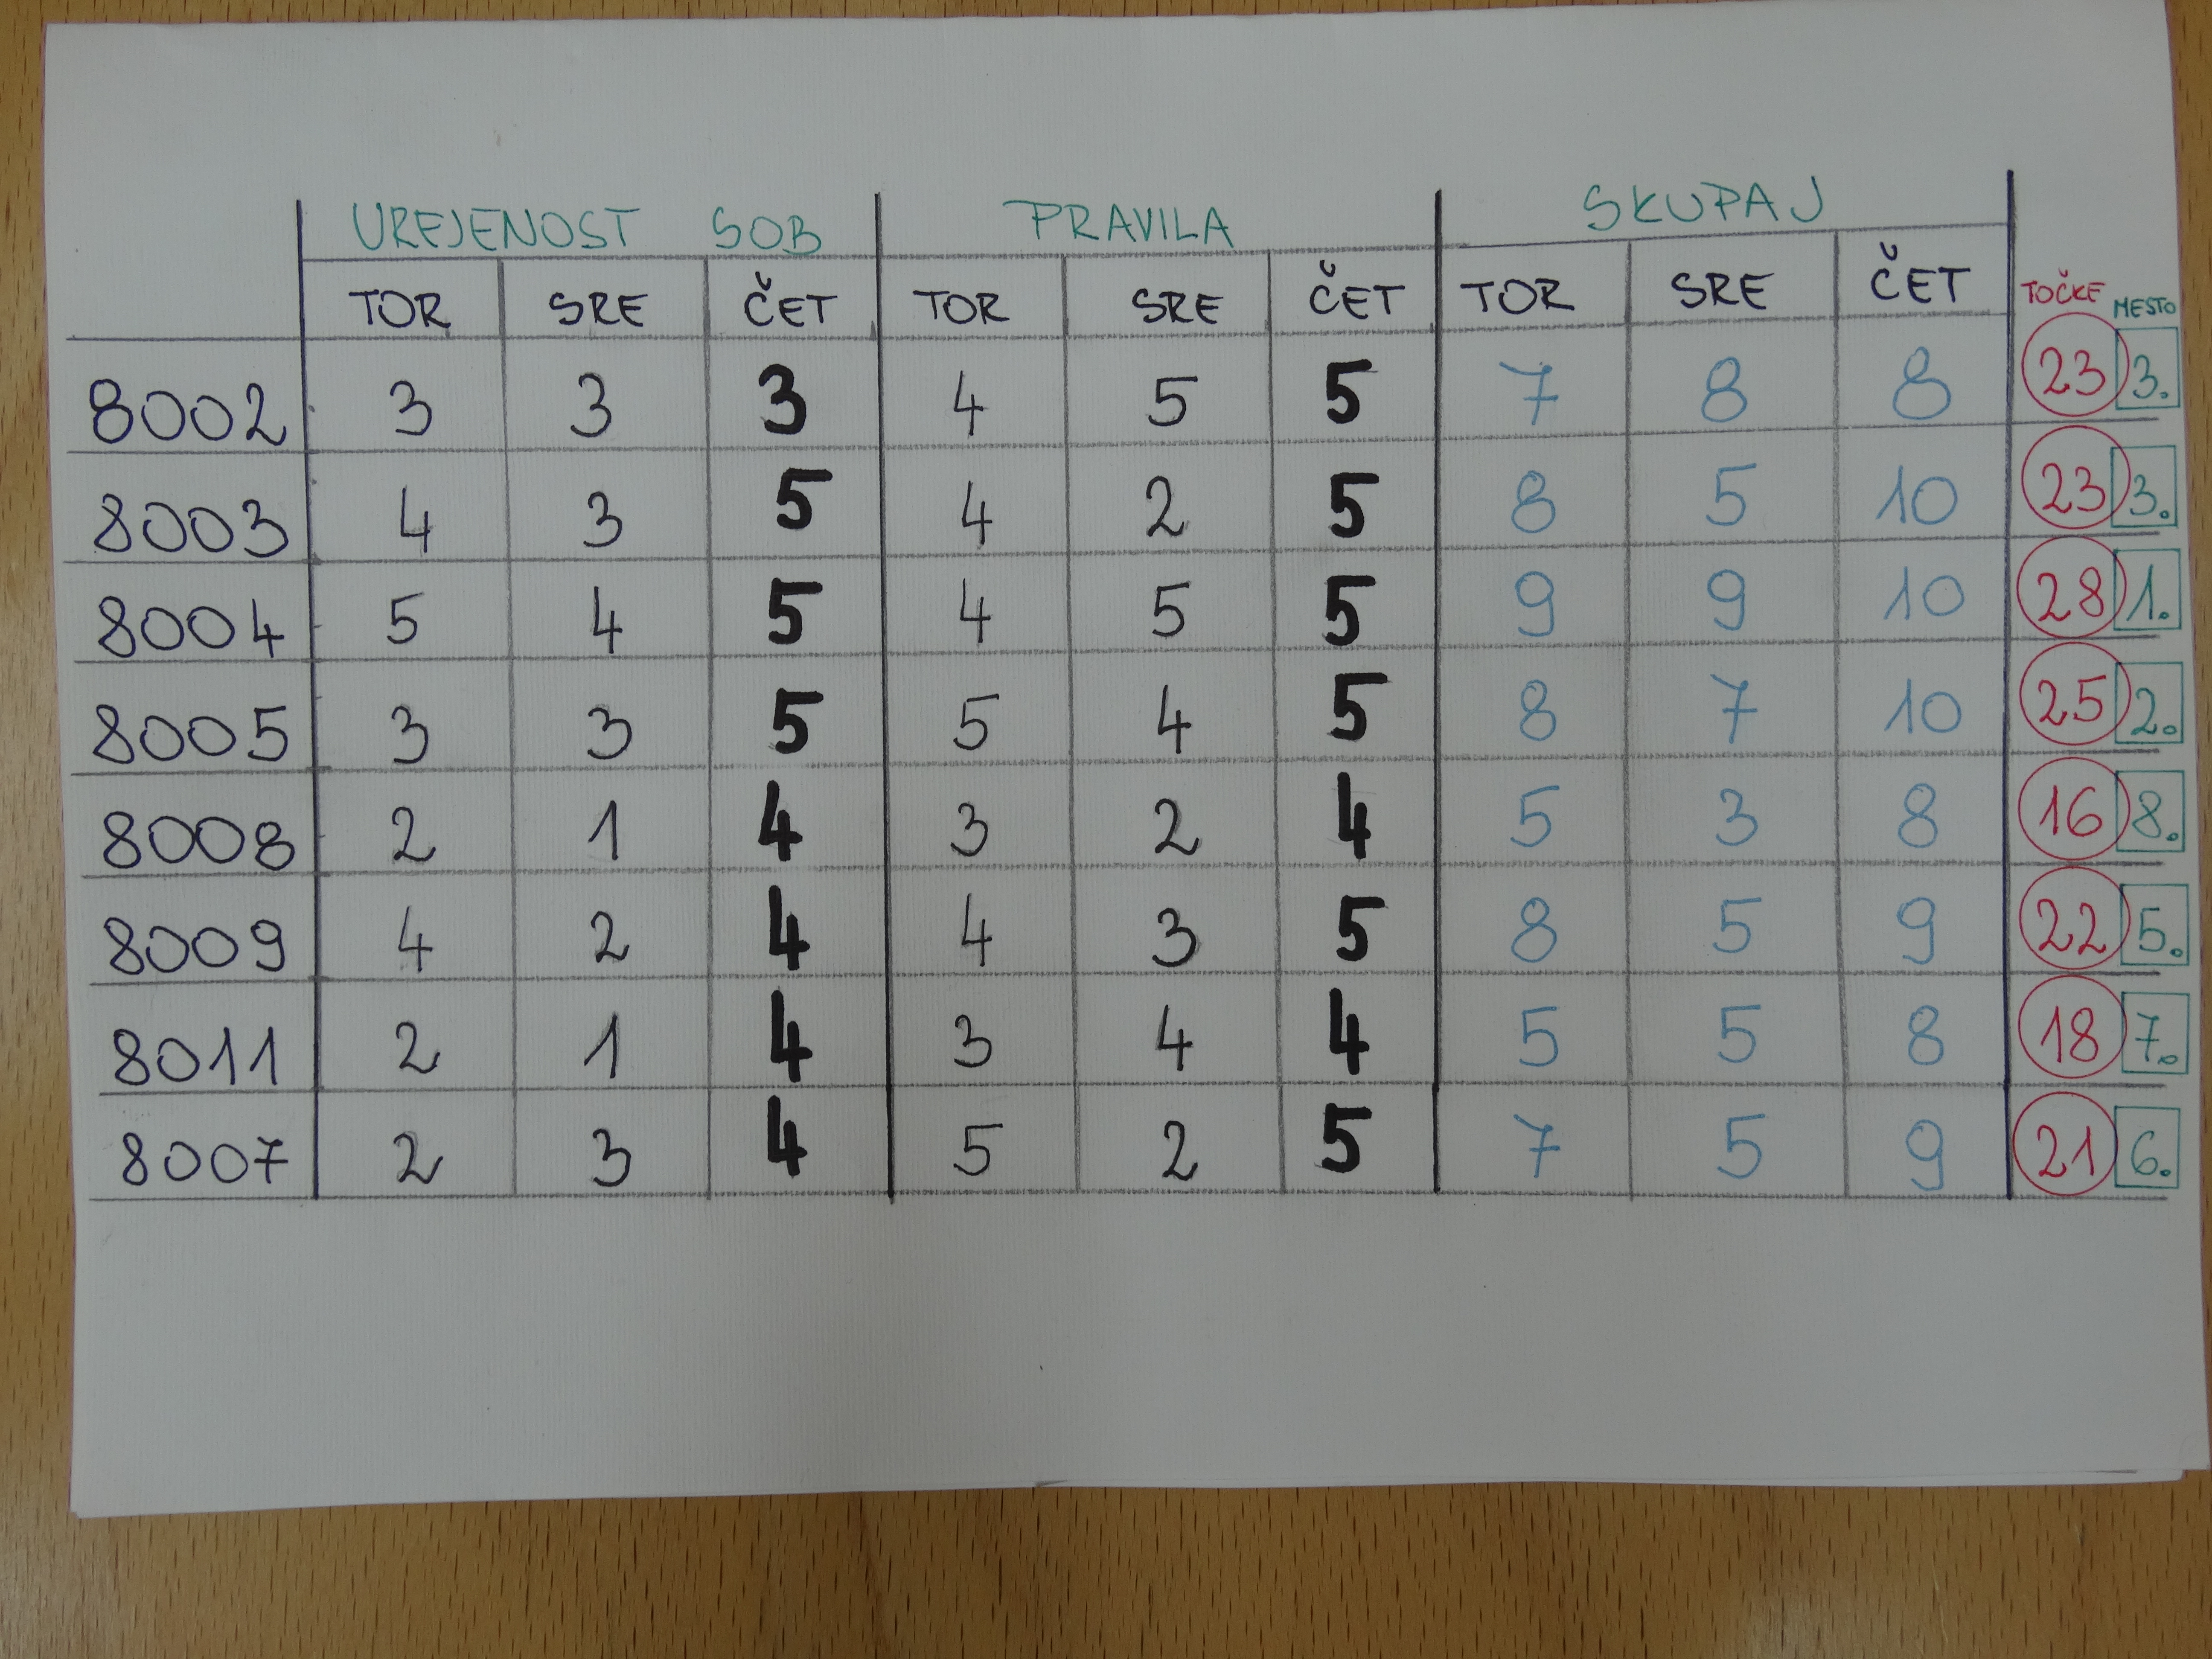 UREJENOST SOB PRAVILA SKUPAJ
TOR SRE ČET TOR SRE ČET TOR SRE ČET TOČKE MESTO
8002 3 3 3 4 5 5 7 8 8 23 3.
8003 4 3 5 4 2 5 8 5 10 23 3.
8004 5 4 5 4 5 5 9 9 10 28 1.
8005 3 3 5 5 4 5 8 7 10 25 2.
8008 2 1 4 3 2 4 5 3 8 16 8.
8009 4 2 4 4 3 5 8 5 9 22 5.
8011 2 1 4 3 4 4 5 5 8 18 7.
8007 2 3 4 5 2 5 7 5 9 21 6.